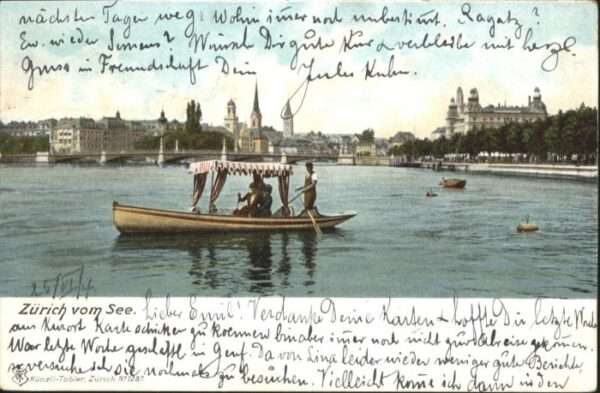 nächsten Tagen weg! Wohin imer noch unbestimt. Ragatz?
Ev. wieder Simens? Wünsch Dir gute Kur & verbleibe mit herzl.
Gruss in Freundschaft Dein Jules Kuhn.
Zürich vom See. Lieber Emil! Verdanke Deine Karten & hoffte Dir letzte Woche
aus Kurort Karte schicken zu koennen bin aber imer noch nicht zur Abreise gekomen.
War letzte Woche geschäftl. in Genf. Da von Lina leider wieder weniger gute Berichte,
so versuche ich sie nochmals zu besuchen. Vielleicht kome ich dann in den
Künzli-Tobler, Zürich